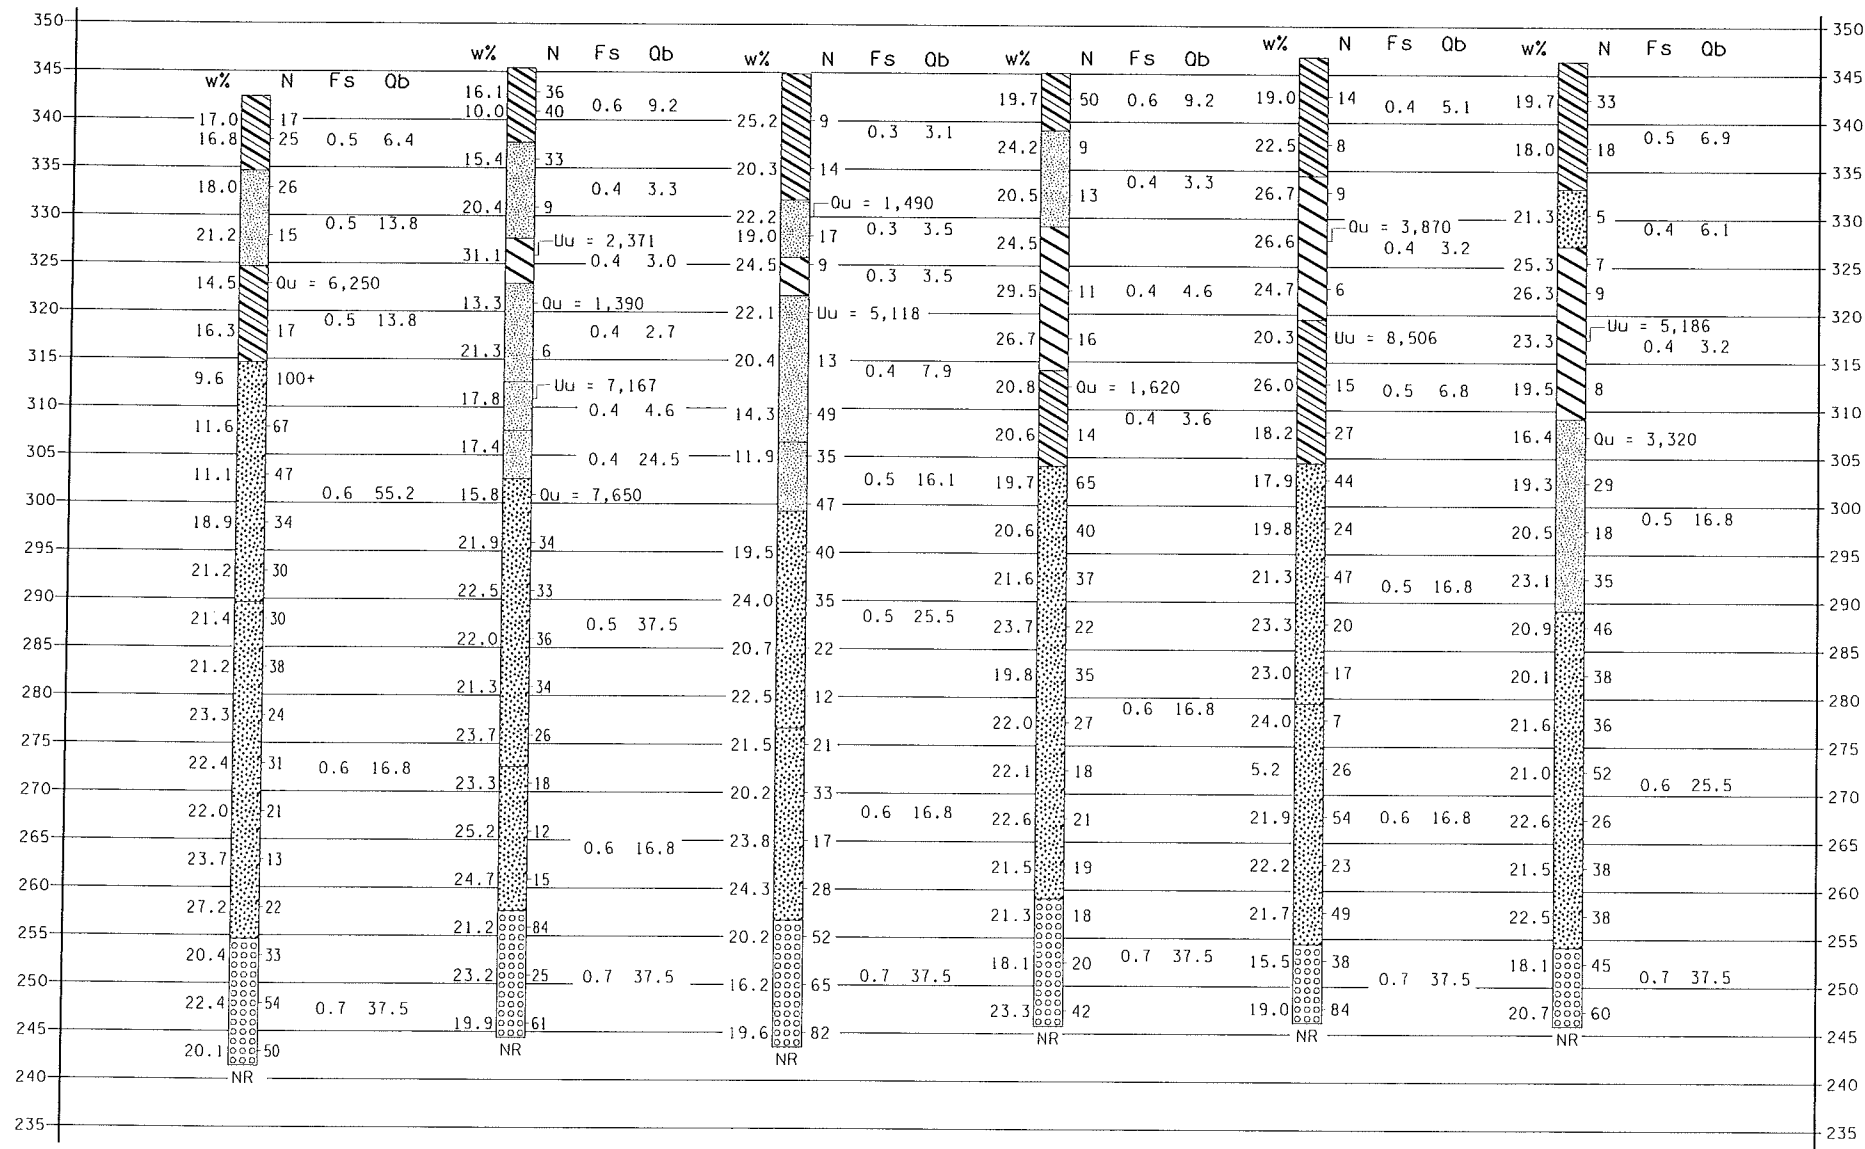 350
345
340
335
330
325
320
315
310
305
300
295
290
285
280
275
270
265
260
255
250
245
240
235
w% N Fs Qb
17.0 17
16.8 25 0.5 6.4
18.0 26
0.5 13.8
21.2 15
14.5 Qu = 6,250
0.5 13.8
16.3 17
9.6 100+
11.6 67
11.1 47
0.6 55.2
18.9 34
21.2 30
21.4 30
21.2 38
23.3 24
22.4 31 0.6 16.8
22.0 21
23.7 13
27.2 22
20.4 33
22.4 54 0.7 37.5
20.1 50
NR
w% N Fs Qb
16.1 36
10.0 40 0.6 9.2
15.4 33
0.4 3.3
20.4 9
Uu = 2,371
31.1 0.4 3.0
13.3 Qu = 1,390
0.4 2.7
21.3 6
Uu = 7,167
17.8 0.4 4.6
17.4
0.4 24.5
15.8 Qu = 7,650
21.9 34
22.5 33
0.5 37.5
22.0 36
21.3 34
23.7 26
23.3 18
25.2 12
0.6 16.8
24.7 15
21.2 84
23.2 25 0.7 37.5
19.9 61
NR
w% N Fs Qb
25.2 9
0.3 3.1
20.3 14
Qu = 1,490
22.2
0.3 3.5
19.0 17
24.5 9
0.3 3.5
22.1 Uu = 5,118
20.4 13
0.4 7.9
14.3 49
11.9 35
0.5 16.1
47
19.5 40
24.0 35
0.5 25.5
20.7 22
22.5 12
21.5 21
20.2 33
0.6 16.8
23.8 17
24.3 28
20.2 52
16.2 65 0.7 37.5
19.6 82
NR
w% N Fs Qb
19.7 50 0.6 9.2
24.2 9
0.4 3.3
20.5 13
24.5
29.5 11 0.4 4.6
26.7 16
20.8 Qu = 1,620
0.4 3.6
20.6 14
19.7 65
20.6 40
21.6 37
23.7 22
19.8 35
0.6 16.8
22.0 27
22.1 18
22.6 21
21.5 19
21.3 18
0.7 37.5
18.1 20
23.3 42
NR
w% N Fs Qb
19.0 14
0.4 5.1
22.5 8
26.7 9
Qu = 3,870
26.6
0.4 3.2
24.7 6
20.3 Uu = 8,506
26.0 15 0.5 6.8
18.2 27
17.9 44
19.8 24
21.3 47
0.5 16.8
23.3 20
23.0 17
24.0 7
5.2 26
21.9 54 0.6 16.8
22.2 23
21.7 49
15.5 38
0.7 37.5
19.0 84
NR
w% N Fs Qb
19.7 33
0.5 6.9
18.0 18
21.3 5
0.4 6.1
25.3 7
26.3 9
Uu = 5,186
23.3 0.4 3.2
19.5 8
16.4 Qu = 3,320
19.3 29
0.5 16.8
20.5 18
23.1 35
20.9 46
20.1 38
21.6 36
21.0 52
0.6 25.5
22.6 26
21.5 38
22.5 38
18.1 45
0.7 37.5
20.7 60
NR
350
345
340
335
330
325
320
315
310
305
300
295
290
285
280
275
270
265
260
255
250
245
240
235